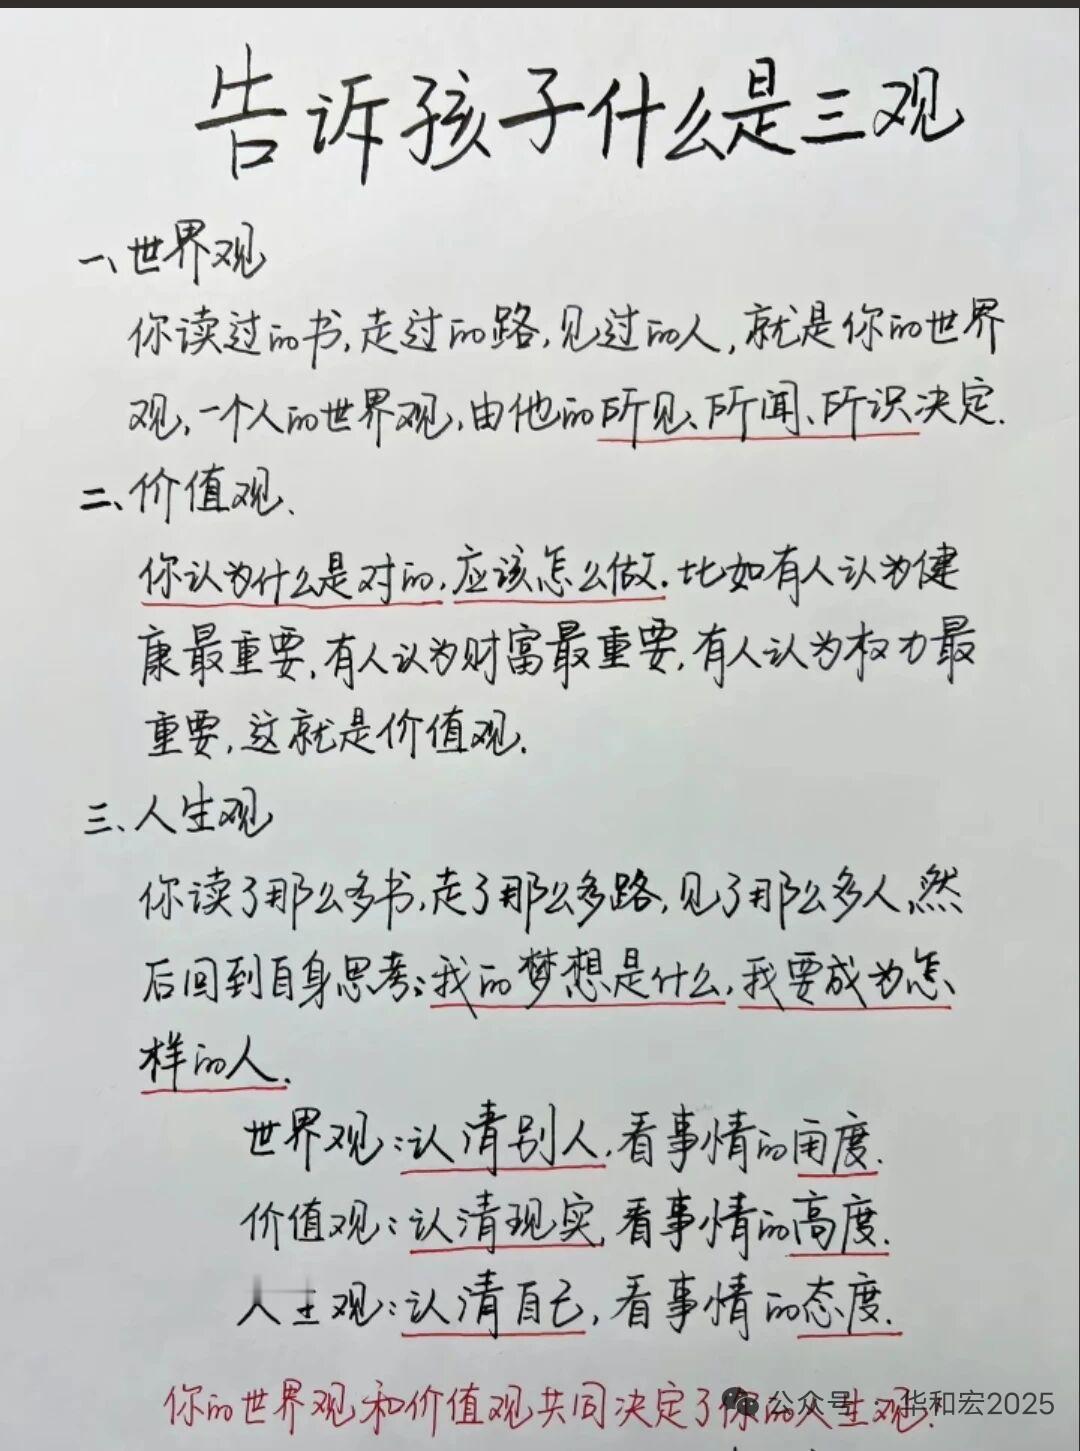 告诉孩子什么是三观
一、世界观
你读过的书,走过的路,见过的人,就是你的世界
观,一个人的世界观,由他的所见、所闻、所识决定.
二、价值观、
你认为什么是对的,应该怎么做.比如有人认为健
康最重要,有人认为财富最重要,有人认为权力最
重要,这就是价值观.
三、人生观
你读了那么多书,走了那么多路,见了那么多人,然
后回到自身思考:我的梦想是什么,我要成为怎
样的人.
世界观:认清别人,看事情的角度.
价值观:认清现实,看事情的高度.
人生观:认清自己,看事情的态度.
你的世界观和价值观共同决定了你的人生观.
公众号 · 华和宏2025